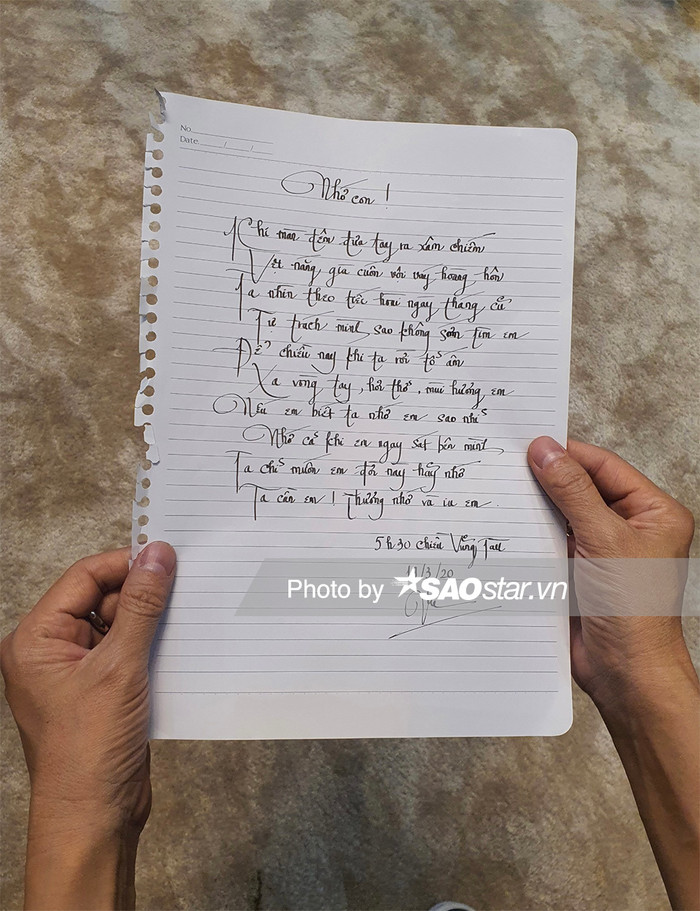 No
Date
Nhớ con !
Khi màn đêm đưa tay ra xâm chiếm
Vệt nắng già cuốn với vây hoàng hôn
Ta nhìn theo tiếc hoài ngày tháng cũ
Tự trách mình, sao không sớm tìm em
Để chiều nay khi ta rời tổ ấm
Xa vòng tay, hơi thở, mùi hương em
Nếu em biết ta nhớ em sao nhỉ
Nhớ cả khi em ngay sát bên mình
Ta chỉ muốn em đời này hãy nhớ
Ta cần em ! Thương nhớ và iu em.
5h30 chiều Vũng Tàu
11/3/20
Photo by SAOstar.vn